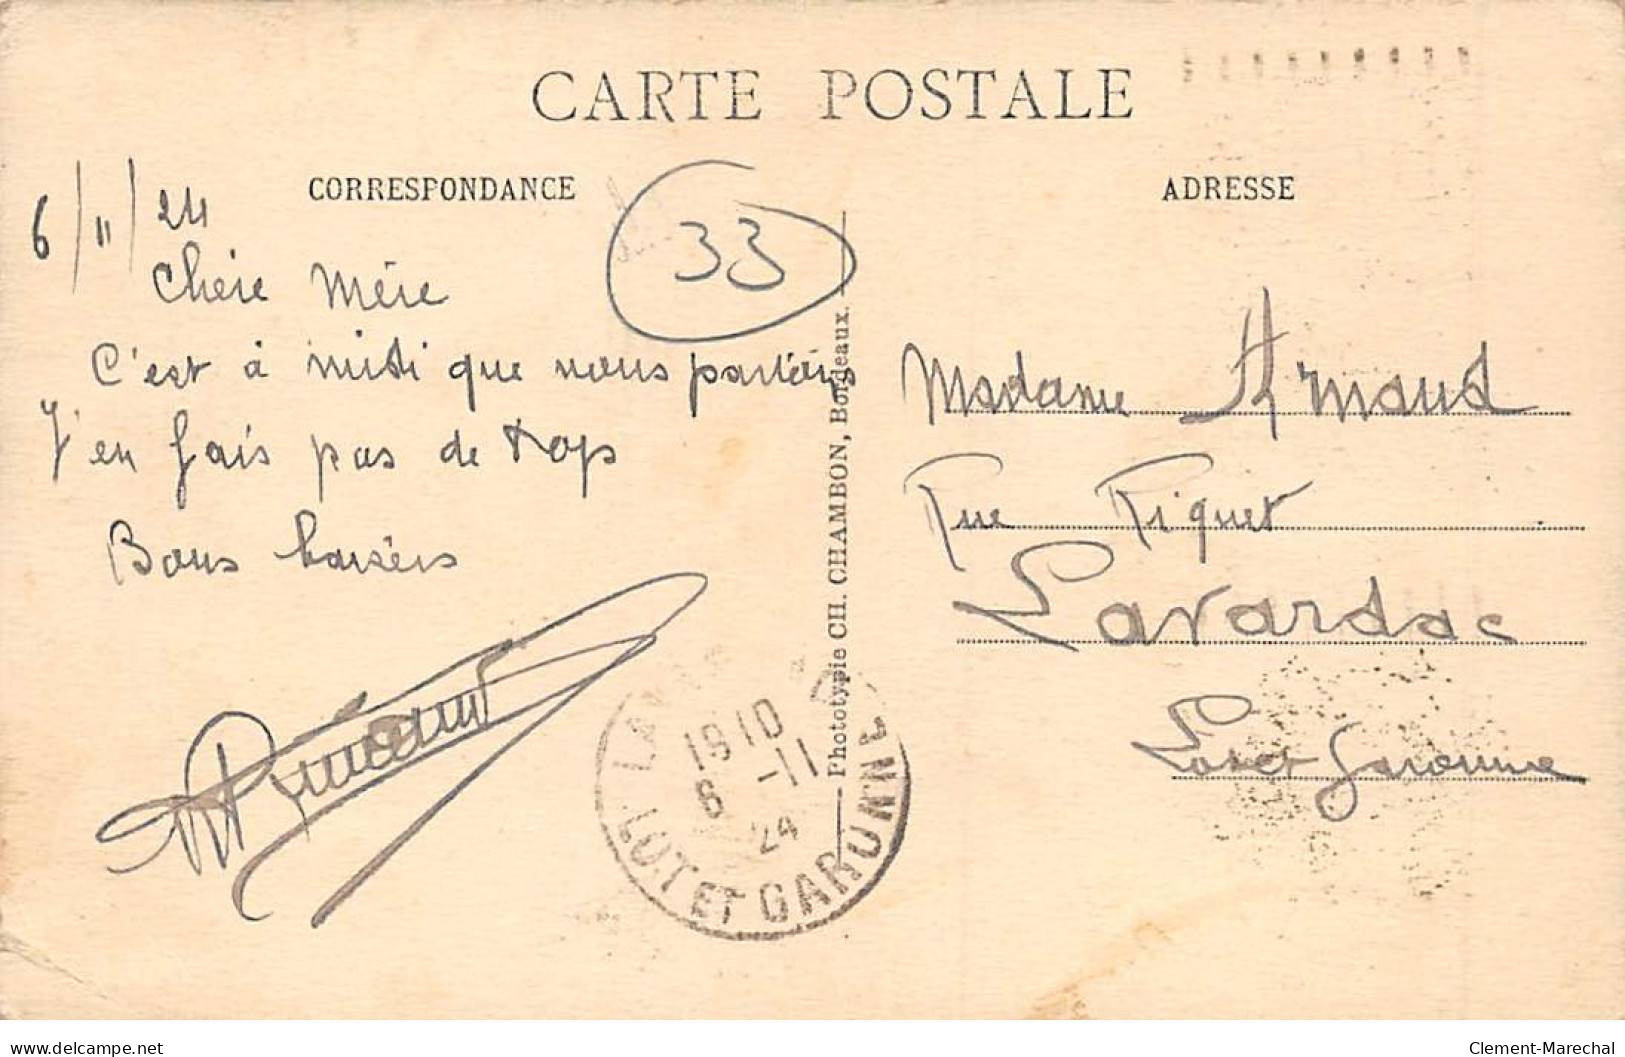 CARTE POSTALE
CORRESPONDANCE
ADRESSE
6/11/24
33
Chère Mère
C'est à midi que nous partons
J'en fais pas de trop
Bons baisers
Phototypie CH. CHAMBON, Bordeaux.
Madame Armaud
Rue Riquet
Lavardac
Lot et Garonne
18 10
-11
24
LOT ET GARONNE
delcampe.net
Clement-Marechal